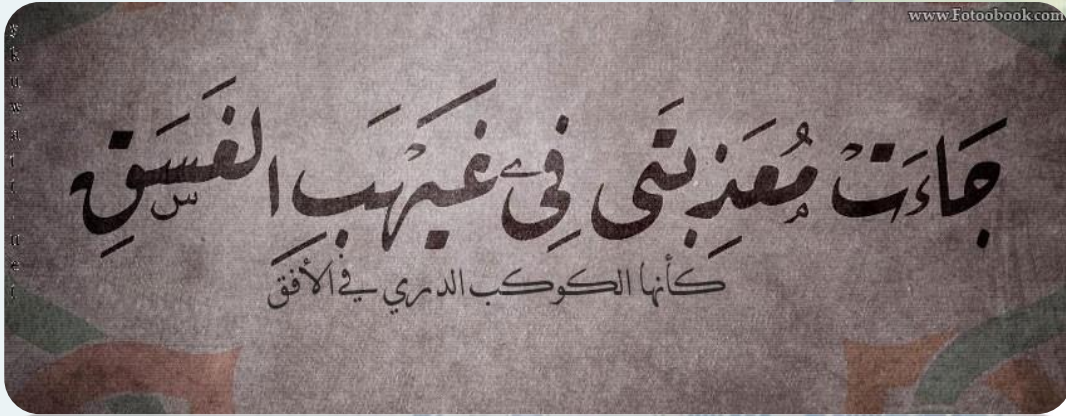 www.Fotoobook.com
جَاءَتْ مُعَذِبَتِى فِى غَيْهَبِ الغَسَقِ
كأنها الكوكب الدري في الأفق